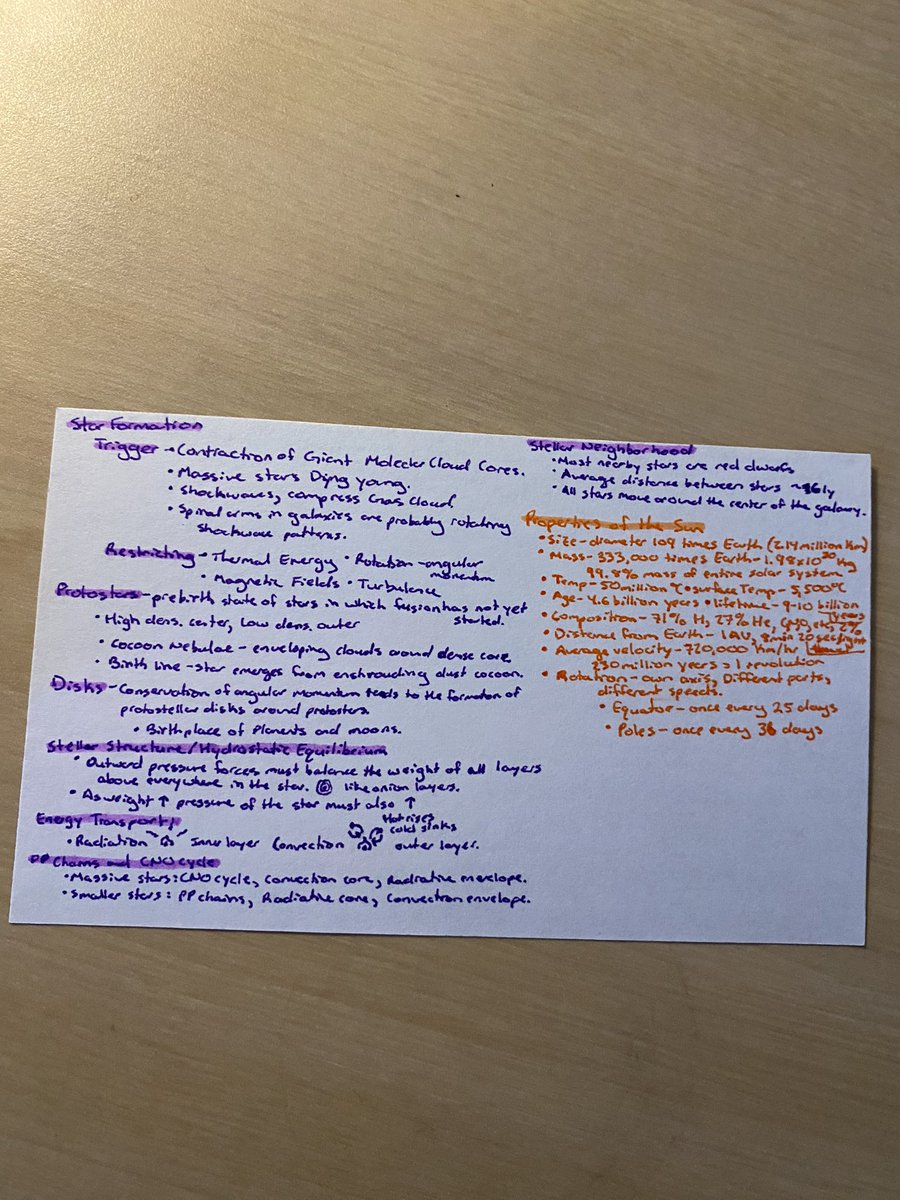 Star Formation
Trigger → Contraction of Giant Molecular Cloud Cores.
• Massive stars Dying young.
• Shockwaves, compress Gas Cloud
• Spiral arms in galaxies are probably rotating
shockwave patterns.
Restricting • Thermal Energy • Rotation - angular
momentum
• Magnetic Fields • Turbulence
Protostars - prebirth state of stars in which fusion has not yet
started.
• High dens. center, Low dens. outer
• Cocoon Nebulae - enveloping clouds around dense core
• Birth line - star emerges from enshrouding dust cocoon.
Disks - Conservation of angular momentum leads to the formation of
protostellar disks around protosters.
• Birthplace of Planents and moons.
Stellar Structure/Hydrostatic Equilibrium
• Outward pressure forces must balance the weight of all layers
above everywhere in the star. like onion layers.
• As weight ↑ pressure of the star must also ↑
Energy Transport
• Radiation Inner layer Convection Hot rises
cold sinks
outer layer.
PP Chains and CNO cycle
• Massive stars: CNO cycle, Convection core, Radiative envelope.
• Smaller stars: PP chains, Radiative core, Convection envelope.
Stellar Neighborhood
• Most nearby stars are red dwarfs
• Average distance between stars ~ ly
• All stars move around the center of the galaxy.
Properties of the Sun
• Size - diameter 109 times Earth (2.14 million Km)
• Mass - 333,000 times Earth - 1.98x10³⁰ Kg
99.8% mass of entire solar system
• Temp - 50 million °C • surface Temp - 5,500°C
• Age - 4.6 billion years • lifetime - 9-10 billion
years
• Composition - 71% H, 27% He, CNO, etc, 2%
• Distance from Earth - 1 AU, 8 min 20 sec light
• Average velocity - 720,000 Km/hr
230 million years = 1 revolution
• Rotation - own axis, Different parts,
different speeds.
• Equator - once every 25 days
• Poles - once every 36 days